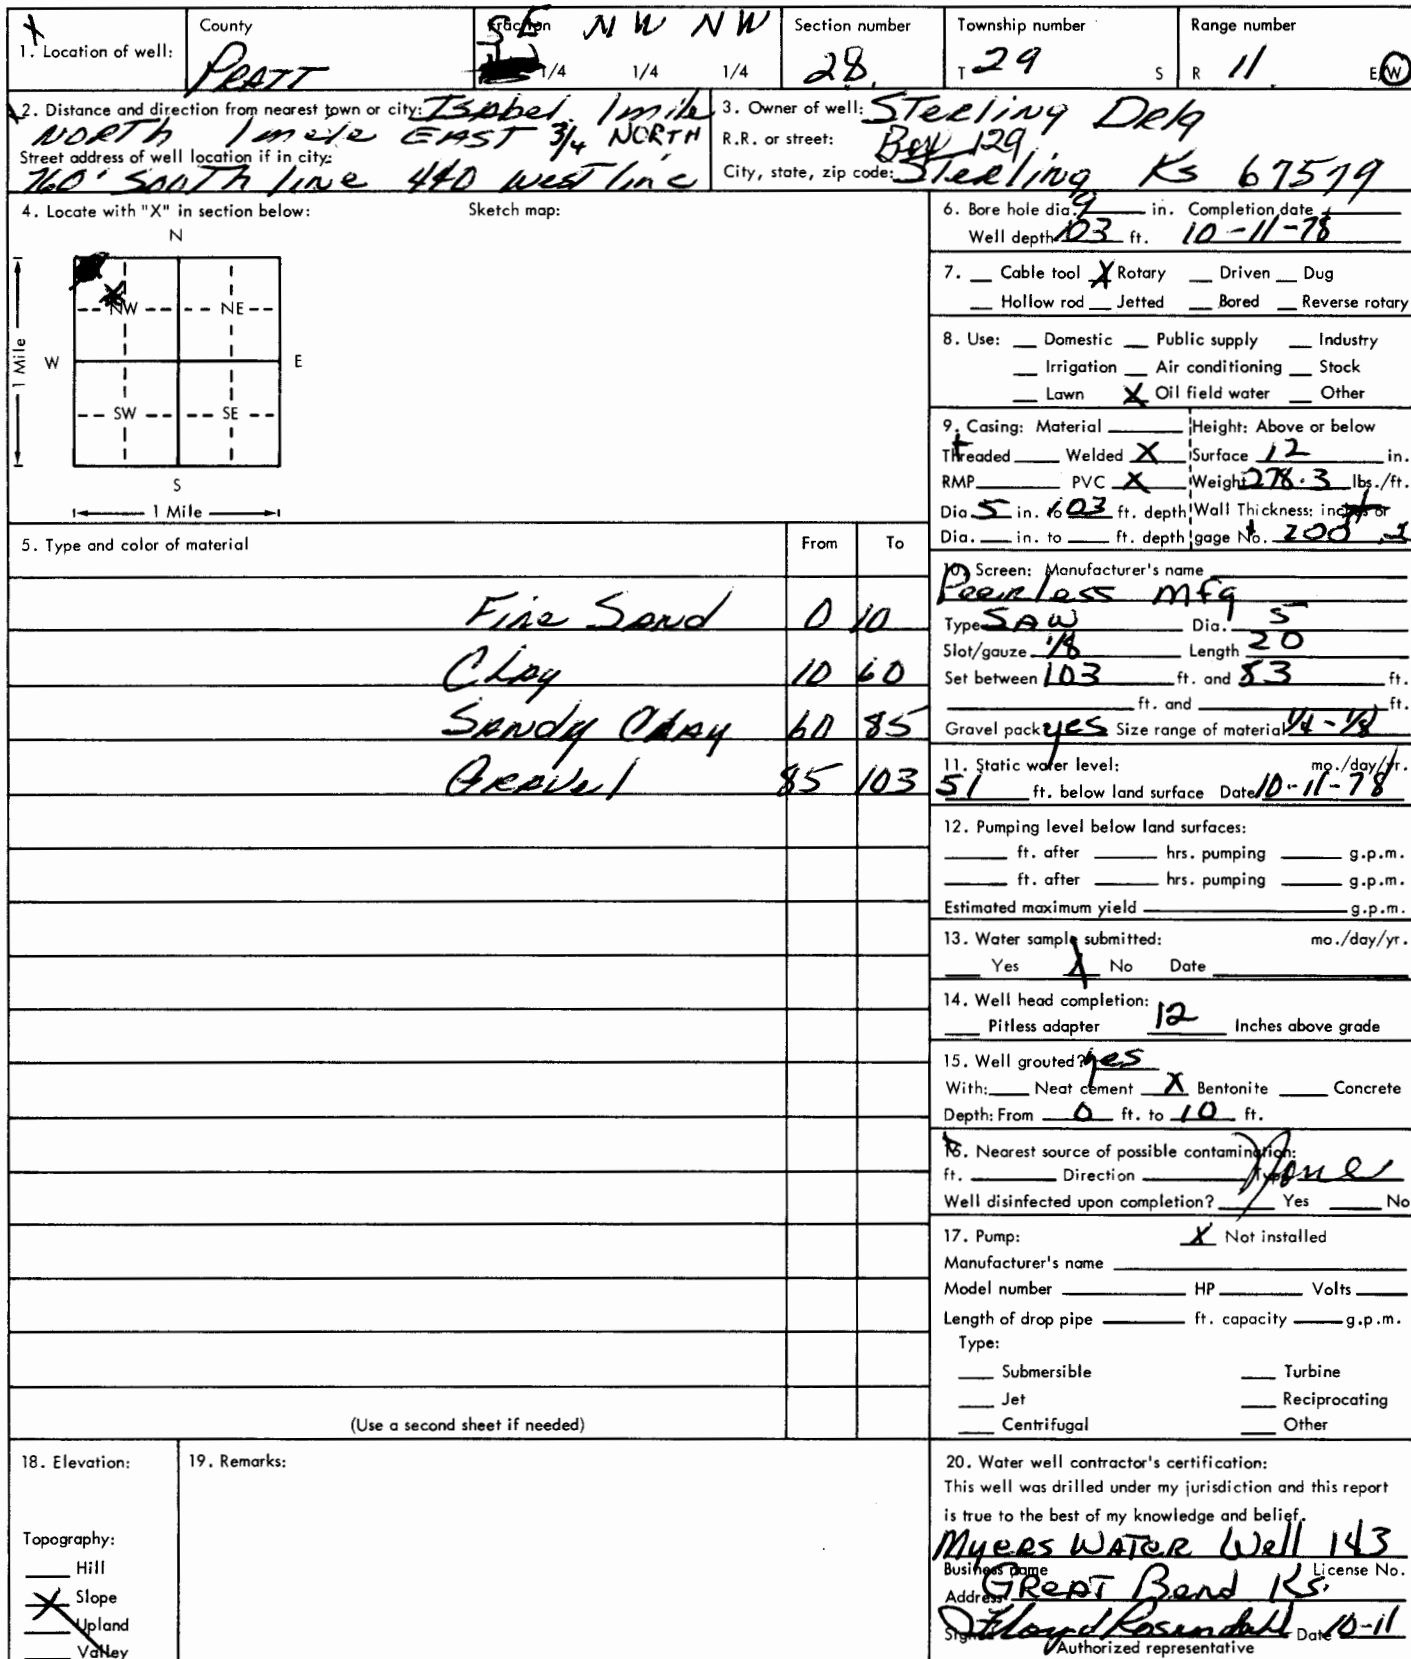 1. Location of well:
County
PRATT
Fraction
SE NW NW
1/4 1/4 1/4
Section number
28
Township number
T 29 S
Range number
R 11 E W
2. Distance and direction from nearest town or city: Isabel 1 mile
NORTH 1 mile EAST 3/4 NORTH
Street address of well location if in city:
760' South line 440 west line
3. Owner of well: Sterling Drlg
R.R. or street: Box 129
City, state, zip code: Sterling Ks 67579
4. Locate with "X" in section below:
Sketch map:
N
NW NE
W E
1 Mile
SW SE
S
1 Mile
5. Type and color of material From To
Fine Sand 0 10
Clay 10 60
Sandy Clay 60 85
Gravel 85 103
(Use a second sheet if needed)
6. Bore hole dia. 9 in. Completion date
Well depth 103 ft. 10-11-78
7. __ Cable tool X Rotary __ Driven __ Dug
__ Hollow rod __ Jetted __ Bored __ Reverse rotary
8. Use: __ Domestic __ Public supply __ Industry
__ Irrigation __ Air conditioning __ Stock
__ Lawn X Oil field water __ Other
9. Casing: Material ____ Height: Above or below
Threaded ____ Welded X Surface 12 in.
RMP ____ PVC X Weight 278.3 lbs./ft.
Dia. 5 in. to 103 ft. depth Wall Thickness: inches or
Dia. __ in. to __ ft. depth gage No. 200
10. Screen: Manufacturer's name
Peerless mfg
Type SAW Dia. 5
Slot/gauze 1/8 Length 20
Set between 103 ft. and 83 ft.
____ ft. and ____ ft.
Gravel pack yes Size range of material 1/4 - 1/8
11. Static water level: mo./day/yr.
51 ft. below land surface Date 10-11-78
12. Pumping level below land surfaces:
____ ft. after ____ hrs. pumping ____ g.p.m.
____ ft. after ____ hrs. pumping ____ g.p.m.
Estimated maximum yield ____ g.p.m.
13. Water sample submitted: mo./day/yr.
__ Yes X No Date ____
14. Well head completion:
__ Pitless adapter 12 Inches above grade
15. Well grouted? yes
With: __ Neat cement X Bentonite __ Concrete
Depth: From 0 ft. to 10 ft.
16. Nearest source of possible contamination:
ft. ____ Direction ____ Type None
Well disinfected upon completion? __ Yes __ No
17. Pump: X Not installed
Manufacturer's name ____
Model number ____ HP ____ Volts ____
Length of drop pipe ____ ft. capacity ____ g.p.m.
Type:
__ Submersible __ Turbine
__ Jet __ Reciprocating
__ Centrifugal __ Other
18. Elevation:
Topography:
__ Hill
X Slope
__ Upland
__ Valley
19. Remarks:
20. Water well contractor's certification:
This well was drilled under my jurisdiction and this report
is true to the best of my knowledge and belief.
Myers Water Well 143
Business name License No.
Address GREAT Bend Ks.
Signed Floyd Rosendahl Date 10-11
Authorized representative